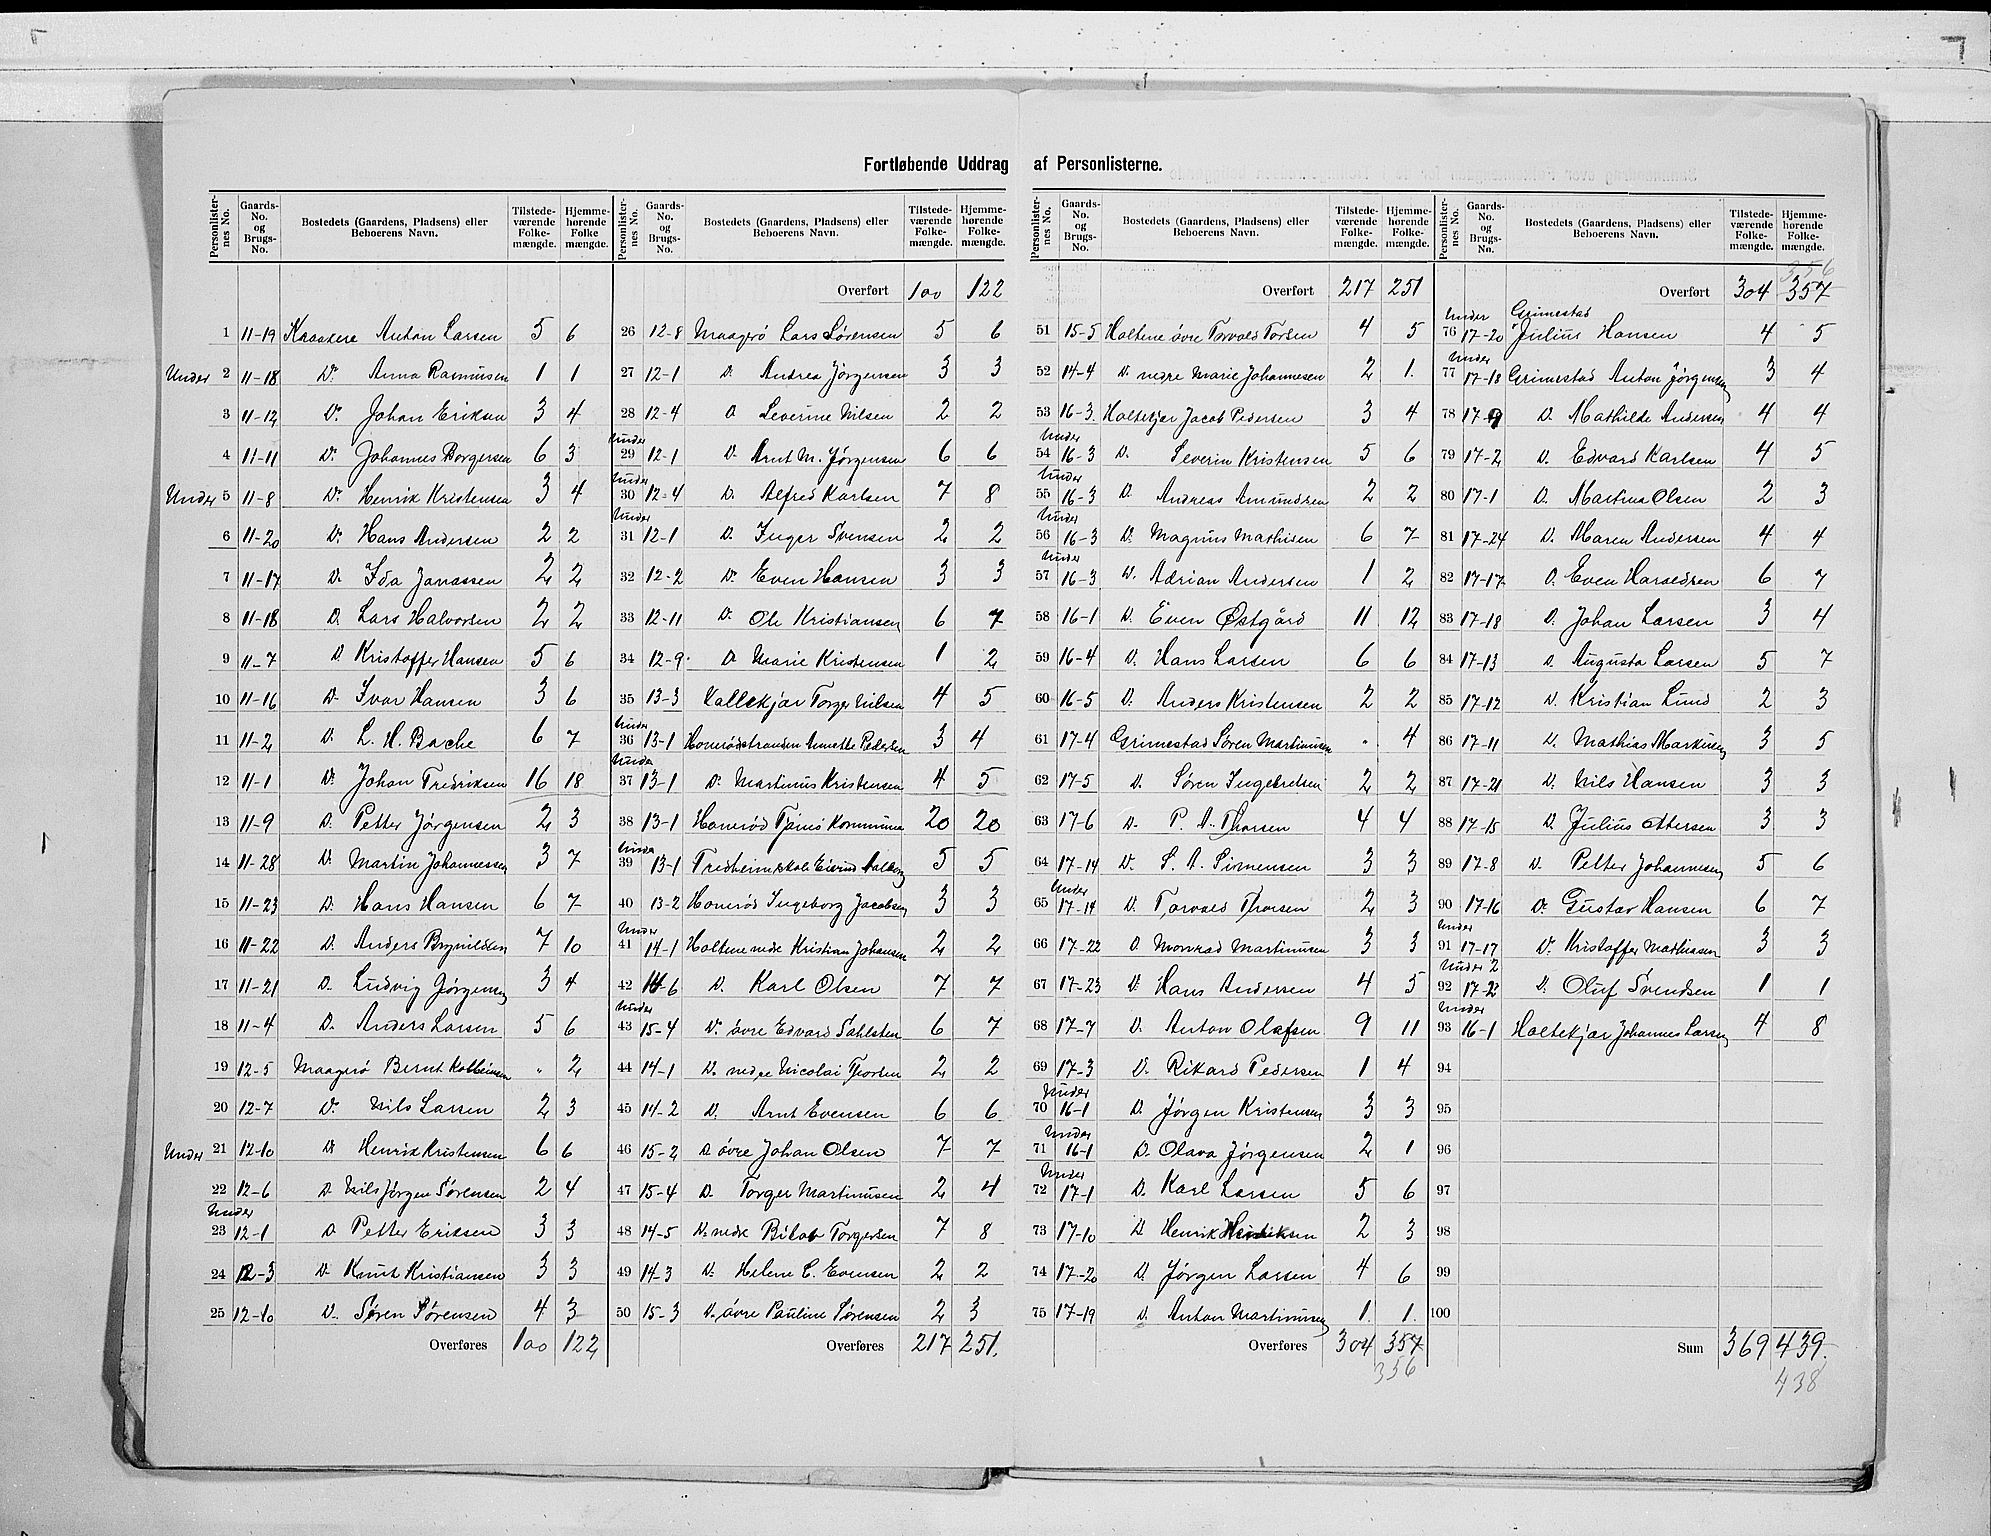 Fortløbende Uddrag af Personlisterne.
Personlister-nes No. | Gaards-No. og Brugs-No. | Bostedets (Gaardens, Pladsens) eller Beboerens Navn. | Tilstede-værende Folke-mængde. | Hjemme-hørende Folke mængde.
1 11-19 Kaaxere Anton Larsen 5 6
Under 2 11-18 Do Anna Rasmusen 1 1
3 11-12 Do Johan Eriksen 3 4
4 11-11 Do Johannes Borgersen 6 3
Under 5 11-8 Do Henrik Kristensen 3 4
6 11-20 Do Hans Andersen 2 2
7 11-17 D. Ida Janassen 2 2
8 11-18 D. Lars Halvorsen 2 2
9 11-7 D. Kristoffer Hansen 5 6
10 11-16 D. Ivar Hansen 3 6
11 11-2 D. L. H. Bache 6 7
12 11-1 D. Johan Fredriksen 16 18
13 11-9 D. Petter Jørgensen 2 3
14 11-28 D. Martin Johannessen 3 7
15 11-23 D. Hans Hansen 6 7
16 11-22 D. Anders Brynildsen 7 10
17 11-21 D. Ludvig Jørgensen 3 4
18 11-4 D. Anders Larsen 5 6
19 12-5 Maagerø Bernt Kolbeinsen " 2
20 12-7 Do Nils Larsen 2 3
Under 21 12-10 D. Henrik Kristensen 6 6
22 12-6 D. Nils Jørgen Sørensen 2 4
Under 23 12-1 D. Petter Eriksen 3 3
24 12-3 D. Knut Kristiansen 3 3
25 12-10 D. Søren Sørensen 4 3
Overføres 100 122
Personlister-nes No. | Gaards-No. og Brugs-No. | Bostedets (Gaardens, Pladsens) eller Beboerens Navn. | Tilstede-værende Folke-mængde. | Hjemme-hørende Folke-mængde.
Overført 100 122
26 12-8 Maagerø Lars Sørensen 5 6
27 12-1 D. Andrea Jørgensen 3 3
28 12-4 D Severine Nilsen 2 2
Under 29 12-1 D. Arnt M. Jørgensen 6 6
Under 30 12-4 D. Alfred Karlsen 7 8
Under 31 12-1 D. Inger Svensen 2 2
32 12-2 D. Even Hansen 3 3
33 12-11 D. Ole Kristiansen 6 7
34 12-9 D Marie Kristensen 1 2
35 13-3 Kallekjær Torger Nilsen 4 5
Under 36 13-1 Honerødstranden Annette Pedersen 3 4
Under 37 13-1 D. Martinus Kristensen 4 5
38 13-1 Honerød Tjømø Kommune 20 20
Under 39 13-1 Fredheim skole Eivind 5 5
40 13-2 Honerød Ingeborg Jacobsen 3 3
Under 41 14-1 Holtene nede Kristian Johansen 2 2
42 14-6 D. Karl Olsen 7 7
Under 43 15-4 D. øvre Edvard Dahlsten 6 7
44 14-1 D. nedre Nicolai Thorsen 2 2
45 14-2 D. Arnt Evensen 6 6
46 15-2 D øvre Johan Olsen 7 7
47 15-4 D. Torger Martinusen 2 4
48 14-5 D. nedre Torgersen 7 8
49 14-3 D. Helene C. Evensen 2 2
50 15-3 D. øvre Pauline Sørensen 2 3
Overføres 217 251.
Personlister-nes No. | Gaards-No. og Brugs-No. | Bostedets (Gaardens, Pladsens) eller Beboerens Navn. | Tilstede-værende Folke-mængde. | Hjemme-hørende Folke-mængde.
Overført 217 251
51 15-5 Holtene øvre Torvald Torsen 4 5
52 14-4 D. nedre Marie Johannesen 2 1.
53 16-3. Holtekjær Jacob Pedersen 3 4
Under 54 16-3 D. Severin Kristensen 5 6
Under 55 16-3 D. Andreas Amundsen 2 2
Under 56 16-3 D. Magnus Mathisen 6 7
Under 57 16-3 D. Adrian Andersen 1 2
58 16-1 D. Even Østgård 11 12
59 16-4 D. Hans Larsen 6 6
60 16-5 D. Anders Kristensen 2 2
61 17-4 Grimestad Søren Martinusen " 4
62 17-5 D. Søren Ingebretsen 2 2
63 17-6 D. P. A. Thorsen 4 4
64 17-14 D. S. A. Simensen 3 3
Under 65 17-14 D. Torvald Thorsen 2 3
66 17-22 D Monrad Martinusen 3 3
67 17-23 D. Hans Andersen 4 5
68 17-7 D. Anton Olafsen 9 11
69 17-3 D. Rikard Pedersen 1 4
Under 70 16-1 D. Jørgen Kristensen 3 3
Under 71 16-1 D. Olava Jørgensen 2 1
Under 72 17-1 D. Karl Larsen 5 6
73 17-10 D. Henrik Henriksen 2 3
74 17-20 D. Jørgen Larsen 4 6
75 17-19 D. Anton Martinusen 1. 1.
Overføres 304 357
356
Personlister-nes No. | Gaards-No. og Brugs-No. | Bostedets (Gaardens, Pladsens) eller Beboerens Navn. | Tilstede-værende Folke-mængde. | Hjemme-hørende Folke-mængde.
356
Overført 304 357
Under 76 17-20 Grimestad Julius Hansen 4 5
Under 77 17-18 Grimestad Anton Jørgensen 3 4
78 17-9 D. Mathilde Andersen 4 4
79 17-2 D. Edvard Karlsen 4 5
80 17-1 D. Martina Olsen 2 3
81 17-24 D. Maren Andersen 4 4
82 17-17 D. Even Haraldsen 6 7
83 17-18 D. Johan Larsen 3 4
84 17-13 D. Augusta Larsen 5 7
85 17-12 D. Kristian Lund 2 3
86 17-11 D. Mathias Markusen 3 5
87 17-21 D. Nils Hansen 3 3
88 17-15 D. Julius Ottersen 3 3
89 17-8 D. Petter Johannesen 5 6
90 17-16 D. Gustav Hansen 6 7
Under 91 17-17 D. Kristoffer Mathiasen 3 3
Under 2 92 17-22 D. Oluf Svendsen 1 1
Under 93 16-1 Holtekjær Johannes Larsen 4 8
94
95
96
97
98
99
100
Sum 369 439.
438